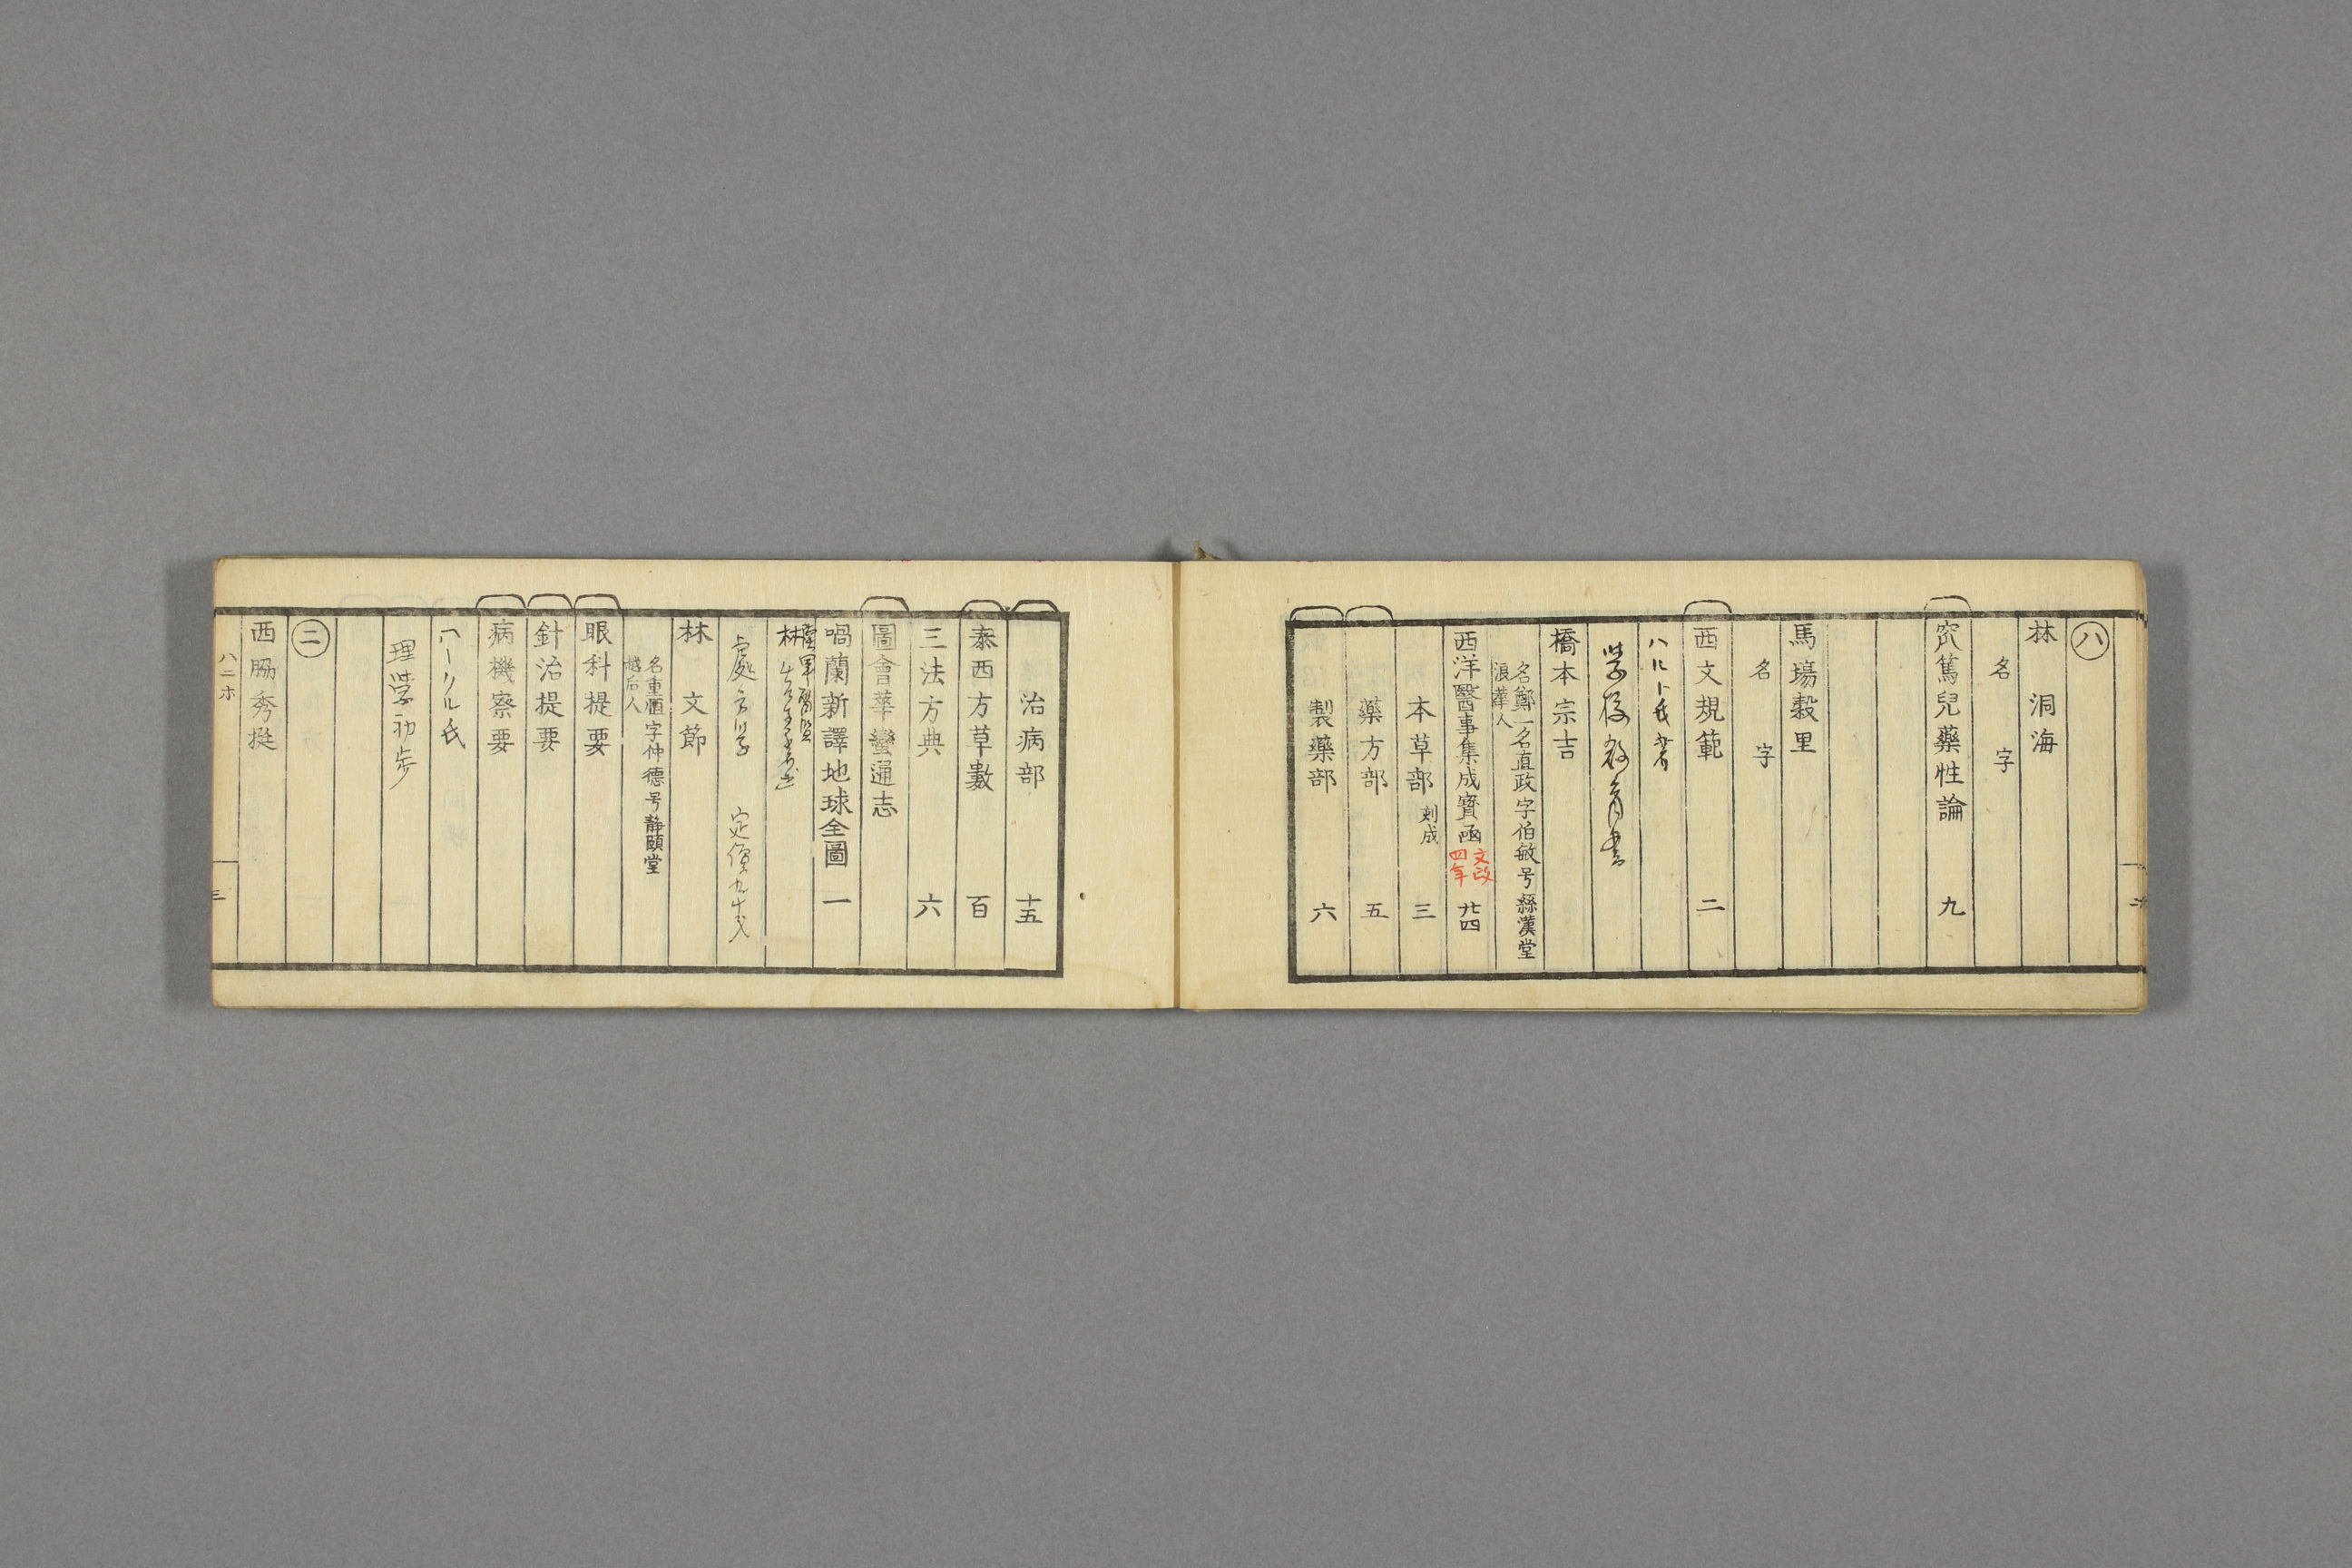 八
林　洞海
名　字
窊篤兒藥性論　九
馬場穀里
名　字
西文規範　二
ハルト氏著
学校教育書
橋本宗吉
名鄭一名直政字伯敏号絲漢堂
浪華人
西洋醫事集成寶函　文政四年　廿四
本草部　刻成　三
藥方部　五
製藥部　六
治病部　十五
泰西方草數　百
三法方典　六
圖會華蠻通志
喎蘭新譯地球全圖　一
陸軍醫監
林
處方学　定價九十戔
林　文節
名重愃字仲德号靜頤堂
越后人
眼科提要
針治提要
病機察要
氏
理学初步
二
西脇秀挺
八ニホ
三